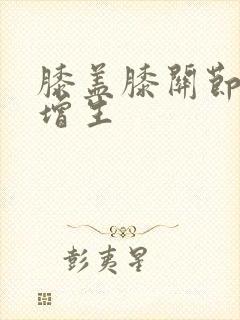 膝盖膝關節
增生
彭夷星